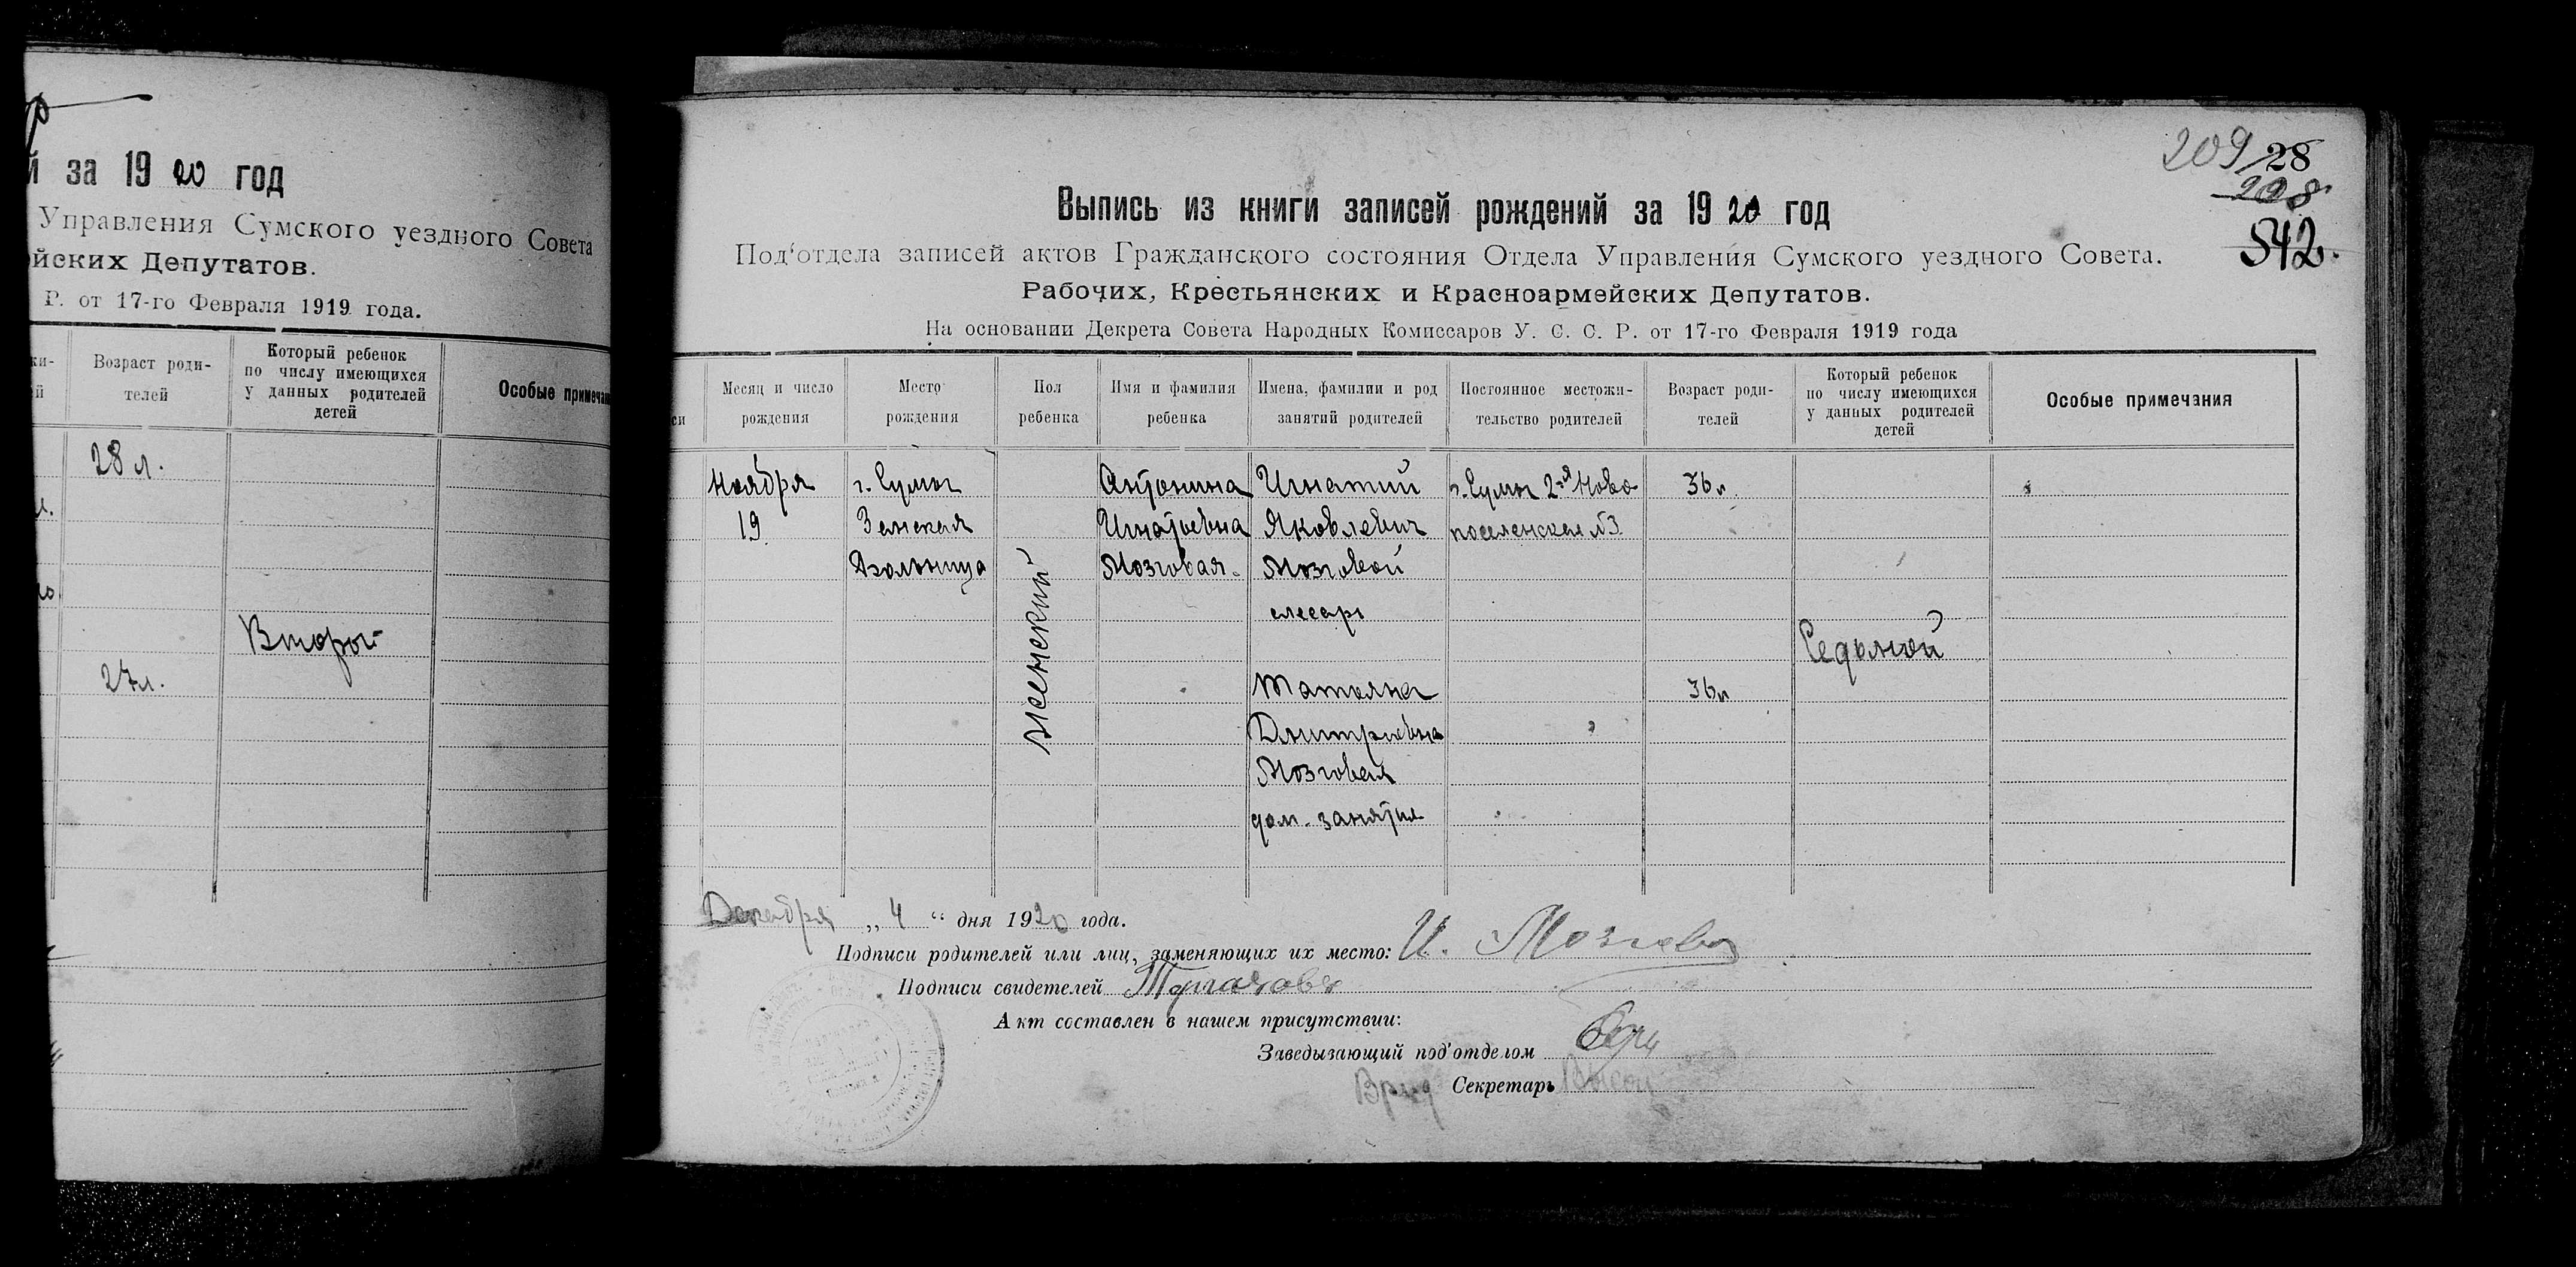 й за 1920 год
Управления Сумского уездного Совета
йских Депутатов.
Р. от 17-го Февраля 1919 года.
Возраст роди-
телей
Который ребенок
по числу имеющихся
у данных родителей
детей
Особые примечан
28 л.
Второй
27 л.
209
28
208
542.
Выпись из книги записей рождений за 1920 год
Под‘отдела записей актов Гражданского состояния Отдела Управления Сумского уездного Совета.
Рабочих, Крестьянских и Красноармейских Депутатов.
На основании Декрета Совета Народных Комиссаров У. С. С. Р. от 17-го Февраля 1919 года
си
Месяц и число
рождения
Место
рождения
Пол
ребенка
Имя и фамилия
ребенка
Имена, фамилии и род
занятий родителей
Постоянное местожи-
тельство родителей
Возраст роди-
телей
Который ребенок
по числу имеющихся
у данных родителей
детей
Особые примечания
Ноября
19
г. Сумы
Земская
Больница
женский
Антонина
Игнатьевна
Мозговая
Игнатий
Яковлевич
Мозговой
слесарь
Татьяна
Дмитриевна
Мозговая
дом. занятия
г. Сумы 2-я Ново
поселенская №3
36 л
36 л
Седьмой
Декабря „ 4 “ дня 1920 года.
Подписи родителей или лиц, заменяющих их место: И. Мозговой
Подписи свидетелей
Акт составлен в нашем присутствии:
Заведызающий под‘отделом
Врид Секретарь